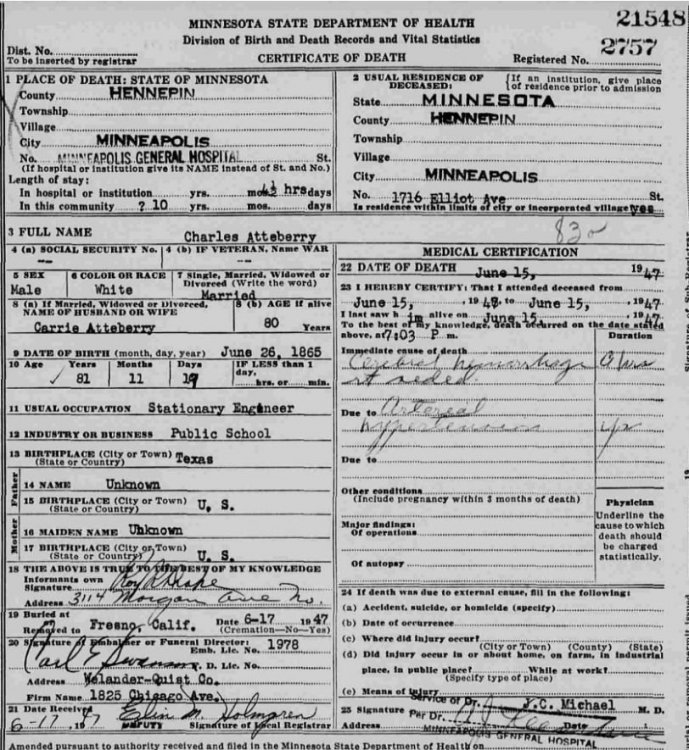 21548
MINNESOTA STATE DEPARTMENT OF HEALTH
Division of Birth and Death Records and Vital Statistics
2757
Dist. No.
To be inserted by registrar
CERTIFICATE OF DEATH
Registered No.
1 PLACE OF DEATH: STATE OF MINNESOTA
County HENNEPIN
Township
Village
City MINNEAPOLIS
No. MINNEAPOLIS GENERAL HOSPITAL St.
(If hospital or institution give its NAME instead of St. and No.)
Length of stay:
In hospital or institution yrs. mos. 4½ hrs days
In this community ? 10 yrs. mos. days
2 USUAL RESIDENCE OF DECEASED: (If an institution, give place of residence prior to admission
State MINNESOTA
County HENNEPIN
Township
Village
City MINNEAPOLIS
No. 1716 Elliot Ave St.
Is residence within limits of city or incorporated village? yes
3 FULL NAME Charles Atteberry
4 (a) SOCIAL SECURITY No. --
4 (b) IF VETERAN, Name WAR --
5 SEX Male
6 COLOR OR RACE White
7 Single, Married, Widowed or Divorced (Write the word) Married
8 (a) If Married, Widowed or Divorced, NAME OF HUSBAND OR WIFE Carrie Atteberry
8 (b) AGE if alive 80 Years
9 DATE OF BIRTH (month, day, year) June 26, 1865
10 Age Years 81 Months 11 Days 19
IF LESS than 1 day, hrs. or min.
11 USUAL OCCUPATION Stationary Engineer
12 INDUSTRY OR BUSINESS Public School
13 BIRTHPLACE (City or Town) (State or Country) Texas
Father
14 NAME Unknown
15 BIRTHPLACE (City or Town) (State or Country) U. S.
Mother
16 MAIDEN NAME Unknown
17 BIRTHPLACE (City or Town) (State or Country) U. S.
18 THE ABOVE IS TRUE TO THE BEST OF MY KNOWLEDGE
Informants own Signature Roy
Address 3114 Morgan Ave No.
19 Buried at
Removed to Fresno, Calif. Date 6-17 1947
(Cremation—No—Yes)
20 Signature of Embalmer or Funeral Director:
Carl E Swanson Emb. Lic. No. 1978
F. D. Lic. No.
Address Welander-Quist Co.
Firm Name 1825 Chicago Ave.
21 Date Received
6-17, 1947 M. Holmgren
DEPUTY Signature of Local Registrar
830
MEDICAL CERTIFICATION
22 DATE OF DEATH June 15, 1947
23 I HEREBY CERTIFY: That I attended deceased from
June 15, , 1947, to June 15, , 1947
I last saw h im alive on June 15, , 1947
To the best of my knowledge, death occurred on the date stated
above, at 7:03 P m.
Duration
Immediate cause of death
Cerebral hemorrhage
rt sided
Due to Arterial
hypertension yr
Due to
Other conditions
(Include pregnancy within 3 months of death)
Major findings:
Of operations
Of autopsy
Physician
Underline the cause to which death should be charged statistically.
24 If death was due to external cause, fill in the following:
(a) Accident, suicide, or homicide (specify)
(b) Date of occurrence
(c) Where did injury occur?
(City or Town) (County) (State)
(d) Did injury occur in or about home, on farm, in industrial
place, in public place? While at work?
(Specify type of place)
(e) Means of injury
Service of Dr. J.C. Michael
25 Signature Per Dr. M. D.
Address Date
MINNEAPOLIS GENERAL HOSPITAL
Amended pursuant to authority received and filed in the Minnesota State Department of Health on